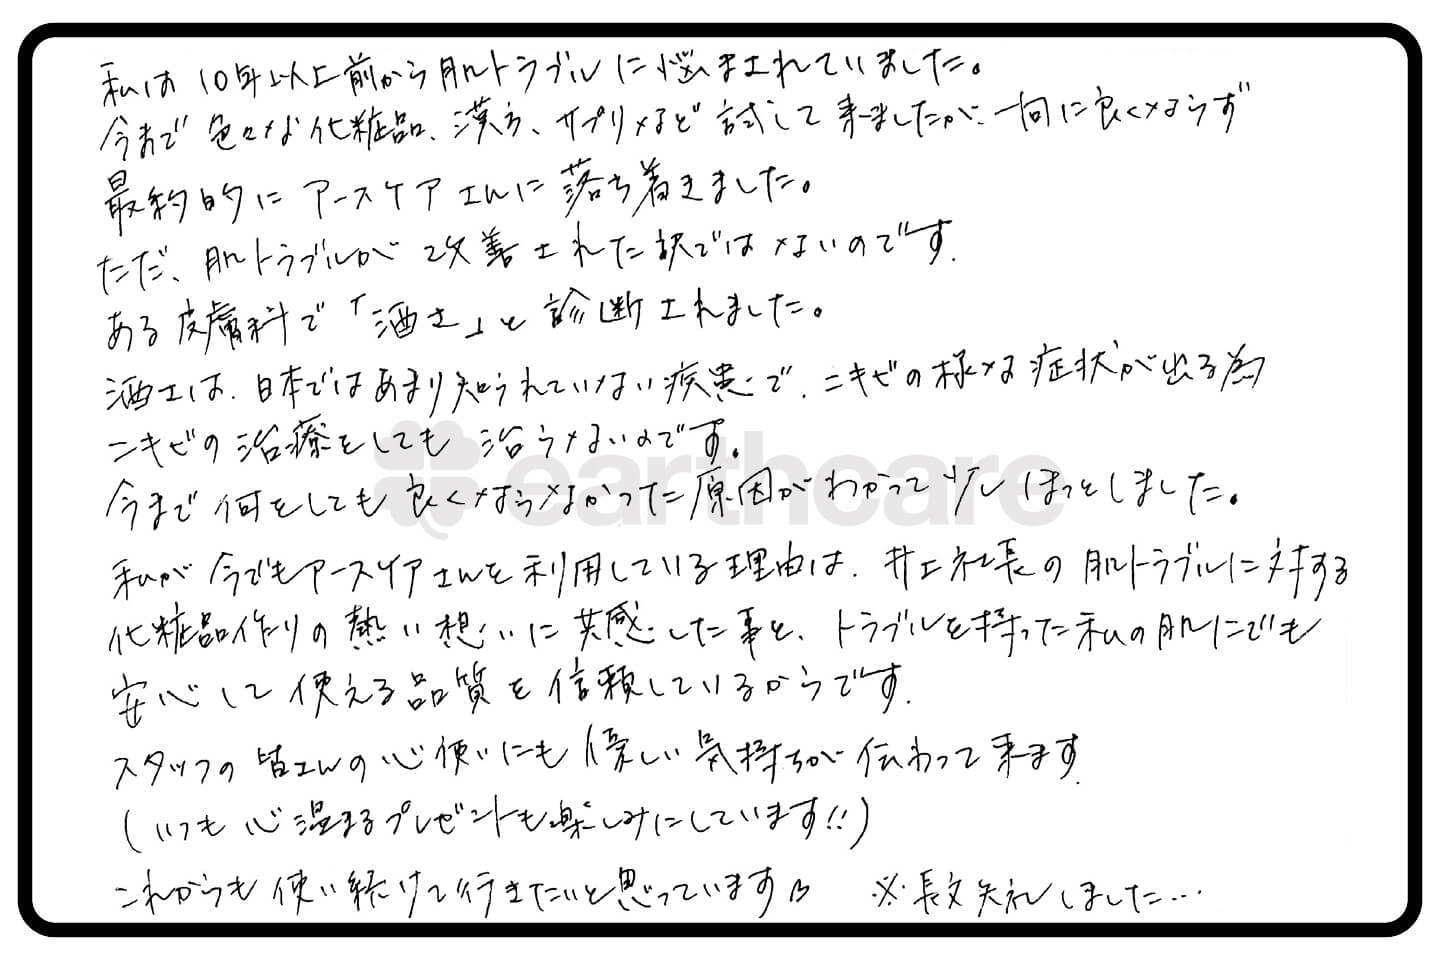 私は10年以上前から肌トラブルに悩まされていました。
今まで色々な化粧品、漢方、サプリなど試して来ましたが、一向に良くならず
最終的にアースケアさんに落ち着きました。
ただ、肌トラブルが改善された訳ではないのです。
ある皮膚科で「酒さ」と診断されました。
酒さは、日本ではあまり知られていない疾患で、ニキビの様な症状が出る為
ニキビの治療をしても治らないのです。
今まで何をしても良くならなかった原因がわかって少しほっとしました。
earthcare
私が今でもアースケアさんを利用している理由は、井上社長の肌トラブルに対する
化粧品作りの熱い想いに共感した事と、トラブルを持った私の肌にでも
安心して使える品質を信頼しているからです。
スタッフの皆さんの心使いにも優しい気持ちが伝わって来ます。
(いつも心温まるプレゼントも楽しみにしています!!)
これからも使い続けて行きたいと思っています ※長文失礼しました…